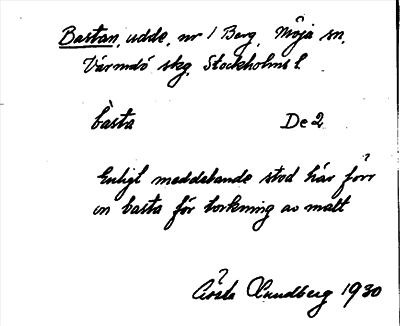 Bastan, udde, nr 1 Berg, Möja sn,
Värmdö skg, Stockholms l.
bàsta De 2
Enligt meddelande stod här förr
en basta för torkning av malt
Gösta Lundberg 1930